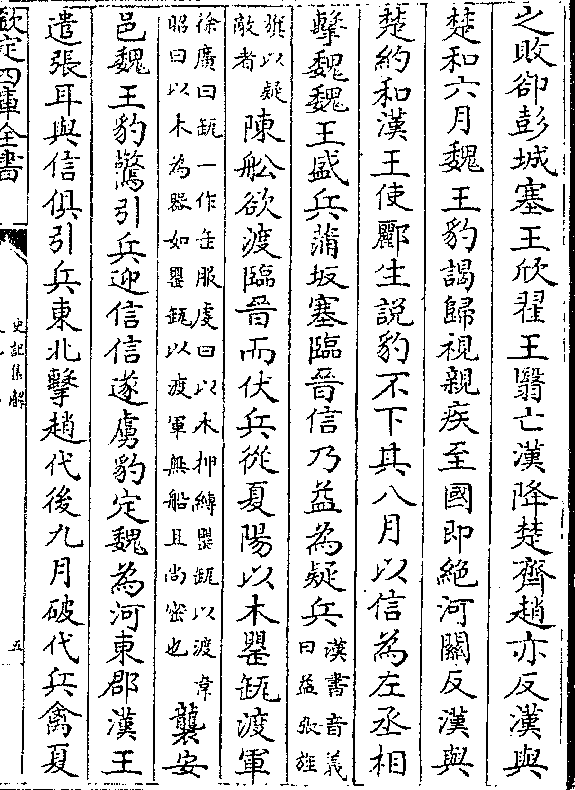 之敗卻彭城塞王欣翟王翳亡漢降楚齊趙亦反漢與
楚和六月魏王豹謁歸視親疾至國即絶河關反漢與
楚約和漢王使酈生説豹不下其八月以信為左丞相
擊魏魏王盛兵蒲坂塞臨晉信乃益為疑兵漢書音義曰益張旌
旂以疑敵者陳舩欲渡臨晉而伏兵從夏陽以木罌缻渡軍
徐廣曰缻一作缶服虔曰以木柙縛罌缻以渡韋昭曰以木為器如罌缻以渡軍無船且尚宻也襲安
邑魏王豹驚引兵迎信信遂虜豹定魏為河東郡漢王
遣張耳與信俱引兵東北擊趙代後九月破代兵禽夏
欽定四庫全書
史記集解
五